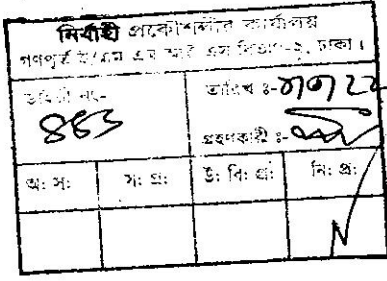 নির্বাহী প্রকৌশলীর কার্যালয়
গণপূর্ত ই/এম এম আই এস বিভাগ-২, ঢাকা।
ডায়েরী নং-
তারিখ ঃ-
৪৪১
গ্রহণকারী ঃ-
অঃ সঃ
সঃ প্রঃ
উঃ বিঃ প্রঃ
নিঃ প্রঃ